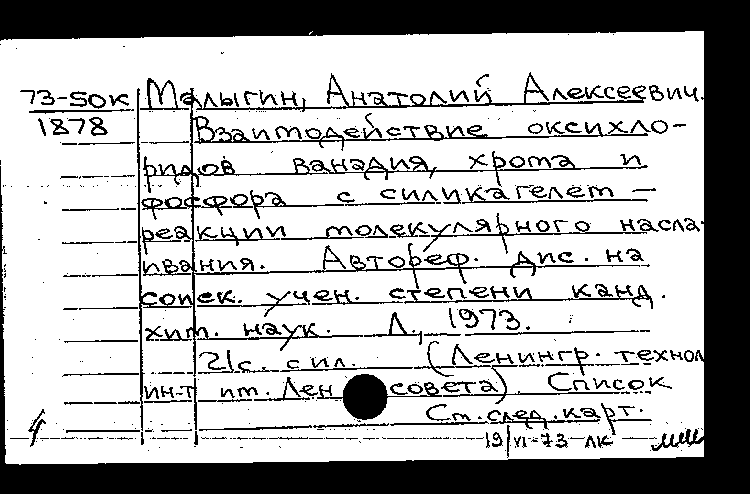 73-50к Малыгин, Анатолий Алексеевич.
1878 Взаимодействие оксихло-
ридов ванадия, хрома и
фосфора с силикагелем —
реакции молекулярного насла-
ивания. Автореф. дис. на
соиск. учен. степени канд.
хим. наук. Л., 1973.
21с. с ил. (Ленингр. технол
ин-т им. Ленсовета). Список
См. след. карт.
19/VI-73 ЛК
4